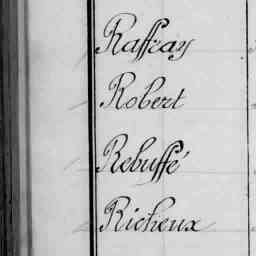 Raffray
Robert
Rebuffé
Richeux